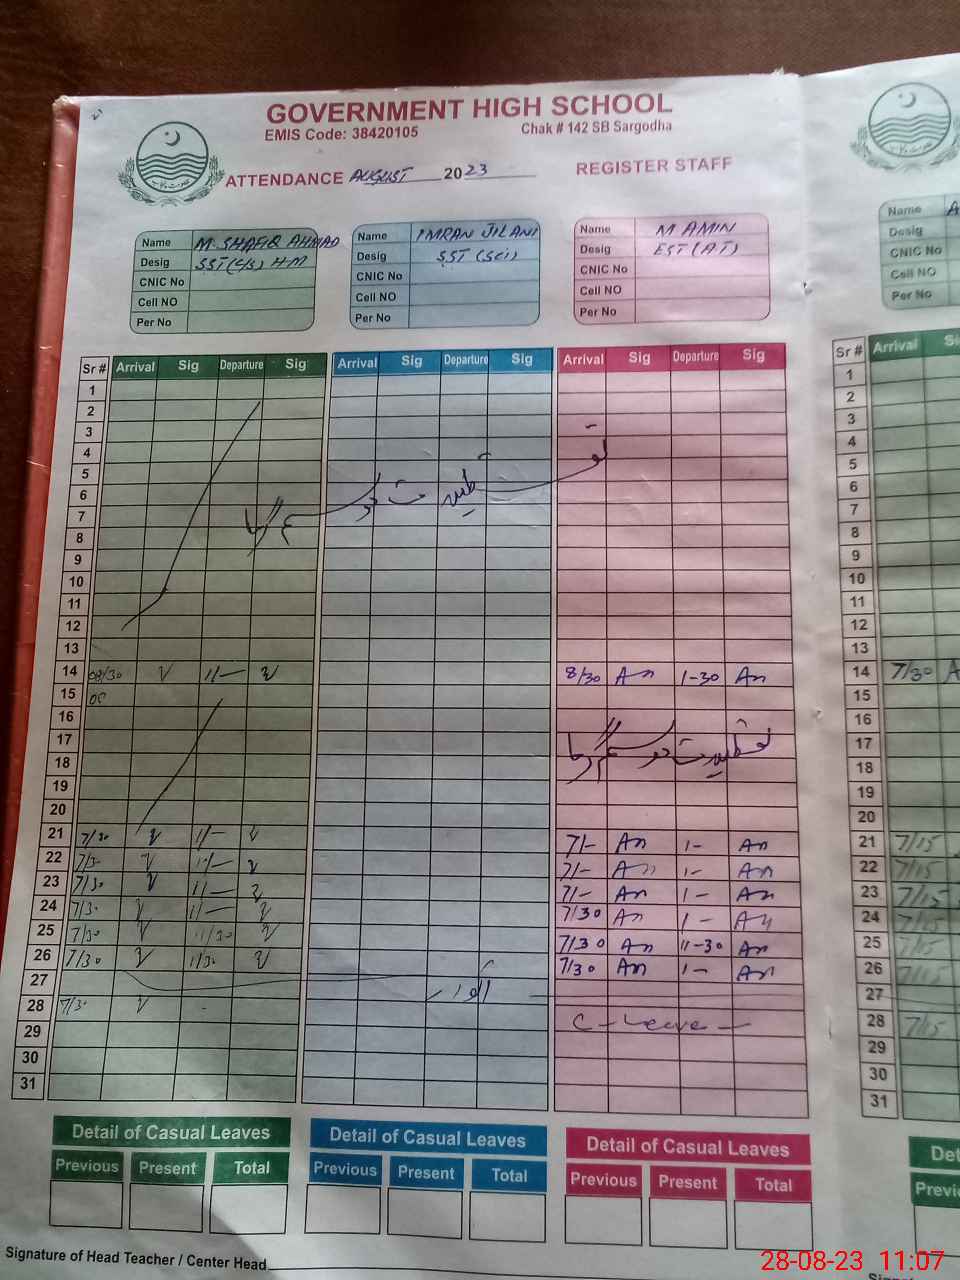 GOVERNMENT HIGH SCHOOL
EMIS Code: 38420105 Chak # 142 SB Sargodha
ATTENDANCE AUGUST 2023 REGISTER STAFF
Name M. SHAFIQ AHMAD
Desig SST (C/S) HM
CNIC No
Cell NO
Per No
Name IMRAN JILANI
Desig SST (Sci)
CNIC No
Cell NO
Per No
Name M AMIN
Desig EST (AT)
CNIC No
Cell NO
Per No
Name A
Desig
CNIC No
Cell NO
Per No
Sr # Arrival Sig Departure Sig Arrival Sig Departure Sig Arrival Sig Departure Sig Sr # Arrival
1 1
2 2
3 3
4 4
5 5
6 6
تعطیلات موسم گرما
7 7
8 8
9 9
10 10
11 11
12 12
13 13
14 08/30 11/— 8/30 An 1-30 An 14 7/30 A
15 08 15
16 16
17 تعطیلات موسم گرما 17
18 18
19 19
20 20
21 7/30 11/— 7/- An 1- An 21 7/15
22 7/30 11/— 7/- An 1- An 22 7/15
23 7/30 11/— 7/- An 1- An 23 7/15
24 7/30 11/— 7/30 An 1- An 24 7/15
25 7/30 11/30 7/30 An 11-30 An 25 7/15
26 7/30 11/30 7/30 An 1- An 26 7/15
27 اتوار 27
28 7/30 C-Leave- 28 7/15
29 29
30 30
31 31
Detail of Casual Leaves Detail of Casual Leaves Detail of Casual Leaves Det
Previous Present Total Previous Present Total Previous Present Total Previ
Signature of Head Teacher / Center Head
28-08-23 11:07